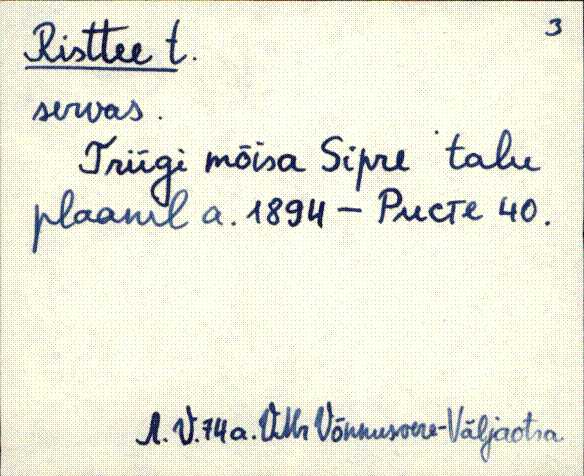 3
Risttee t.
servas.
Triigi mõisa Sipre talu
plaanil a. 1894 – Ристе 40.
A. V. 74 a. VMr Võnnusvere-Väljaotsa